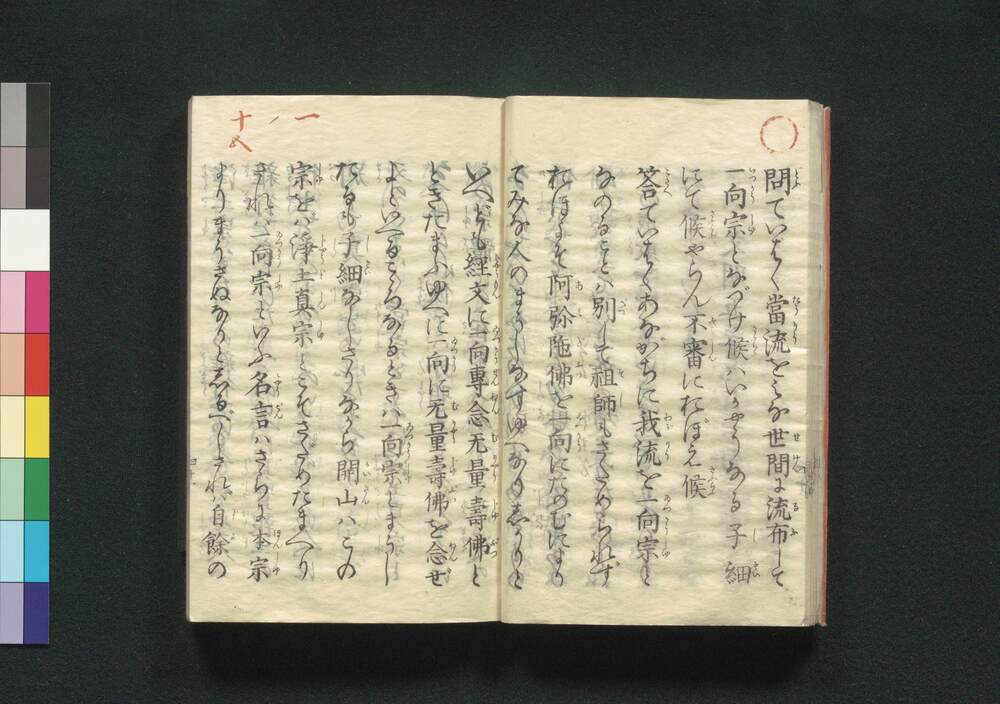 問ていはく當流をみな世間に流布して
一向宗となづけ候はいかやうなる子細
にて候やらん不審におぼえ候
答ていはくあながちに我流を一向宗と
なのることは別して祖師もさだめられず
おほよそ阿弥陁佛を一向にたのむにより
てみな人のまうしなすゆへなりしかりと
一ノ十五
いへども經文に一向專念无量壽佛と
ときたまふゆへに一向に无量壽佛を念ぜ
よといへるこころなるときは一向宗とまうし
たるも子細なしさりながら開山はこの
宗をば浄土真宗とこそさだめたまへり
されば一向宗といふ名言はさらに本宗
よりまうさぬなりとしるべしされば自餘の